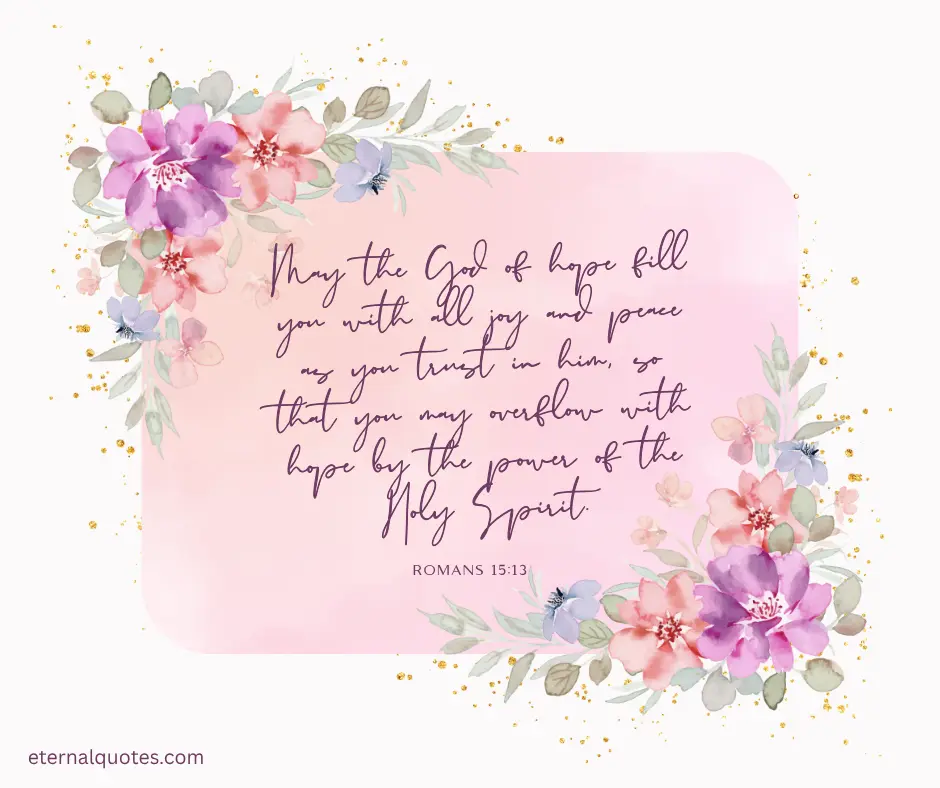 May the God of hope fill
you with all joy and peace
as you trust in him, so
that you may overflow with
hope by the power of the
Holy Spirit.
ROMANS 15:13
eternalquotes.com